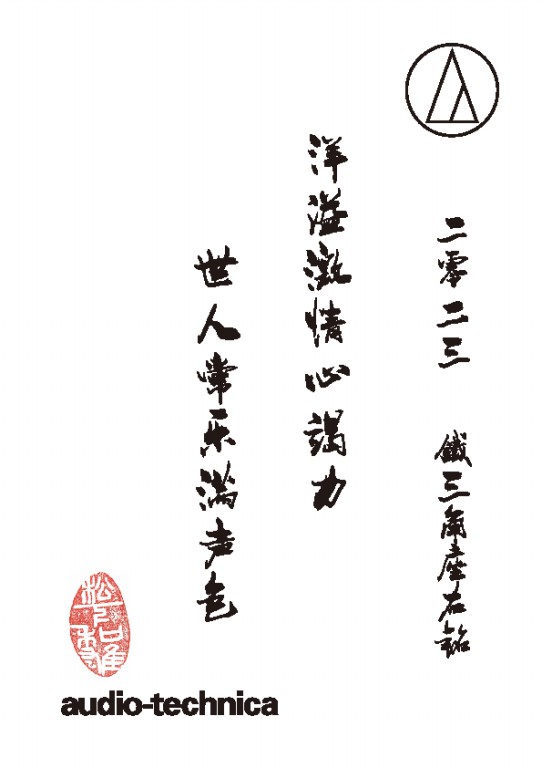 二零二三 鐵三角座右銘
洋溢激情心竭力
世人常乐滿声色
audio-technica